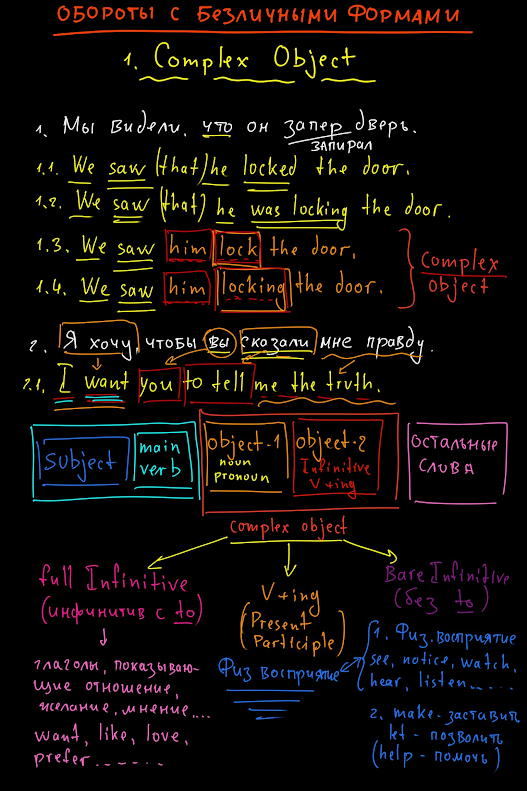 ОБОРОТЫ С БЕЗЛИЧНЫМИ ФОРМАМИ
1. Complex Object
1. Мы видели, что он запер дверь.
запирал
1.1. We saw (that) he locked the door.
1.2. We saw (that) he was locking the door.
1.3. We saw him lock the door.
1.4. We saw him locking the door.
Complex object
2. Я хочу, чтобы вы сказали мне правду.
2.1. I want you to tell me the truth.
subject
main verb
object-1
noun
pronoun
object-2
Infinitive
V+ing
остальные
слова
Complex object
full Infinitive
(инфинитив с to)
глаголы, показываю-
щие отношение,
желание, мнение...
want, like, love,
prefer.......
V+ing
(Present
Participle)
Физ восприятие
Bare Infinitive
(без to)
1. Физ. восприятие
see, notice, watch,
hear, listen......
2. make - заставить
let - позволить
(help - помочь)